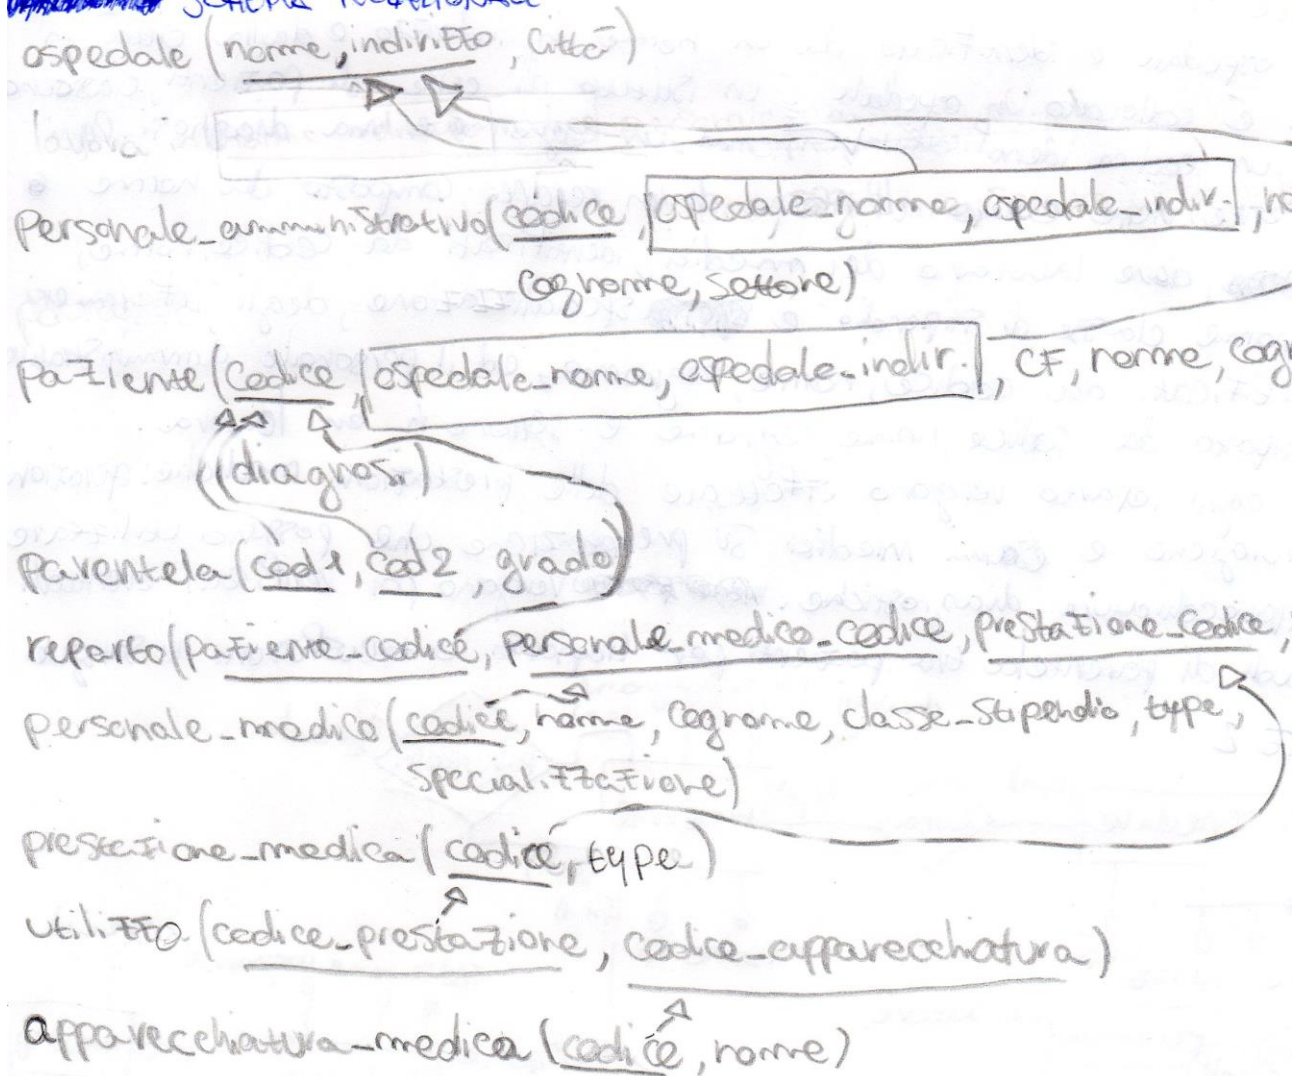 SCHEMA RELAZIONALE
ospedale (nome, indirizzo, città)
personale_amministrativo(codice, ospedale_nome, ospedale_indir., no
cognome, settore)
paziente(codice, ospedale_nome, ospedale_indir., CF, nome, cogn
diagnosi)
parentela(cod1, cod2, grado)
reparto(paziente_codice, personale_medico_codice, prestazione_codice,
personale_medico(codice, nome, cognome, classe_stipendio, type,
specializzazione)
prestazione_medica(codice, type)
utilizzo(codice_prestazione, codice_apparecchiatura)
apparecchiatura_medica(codice, nome)